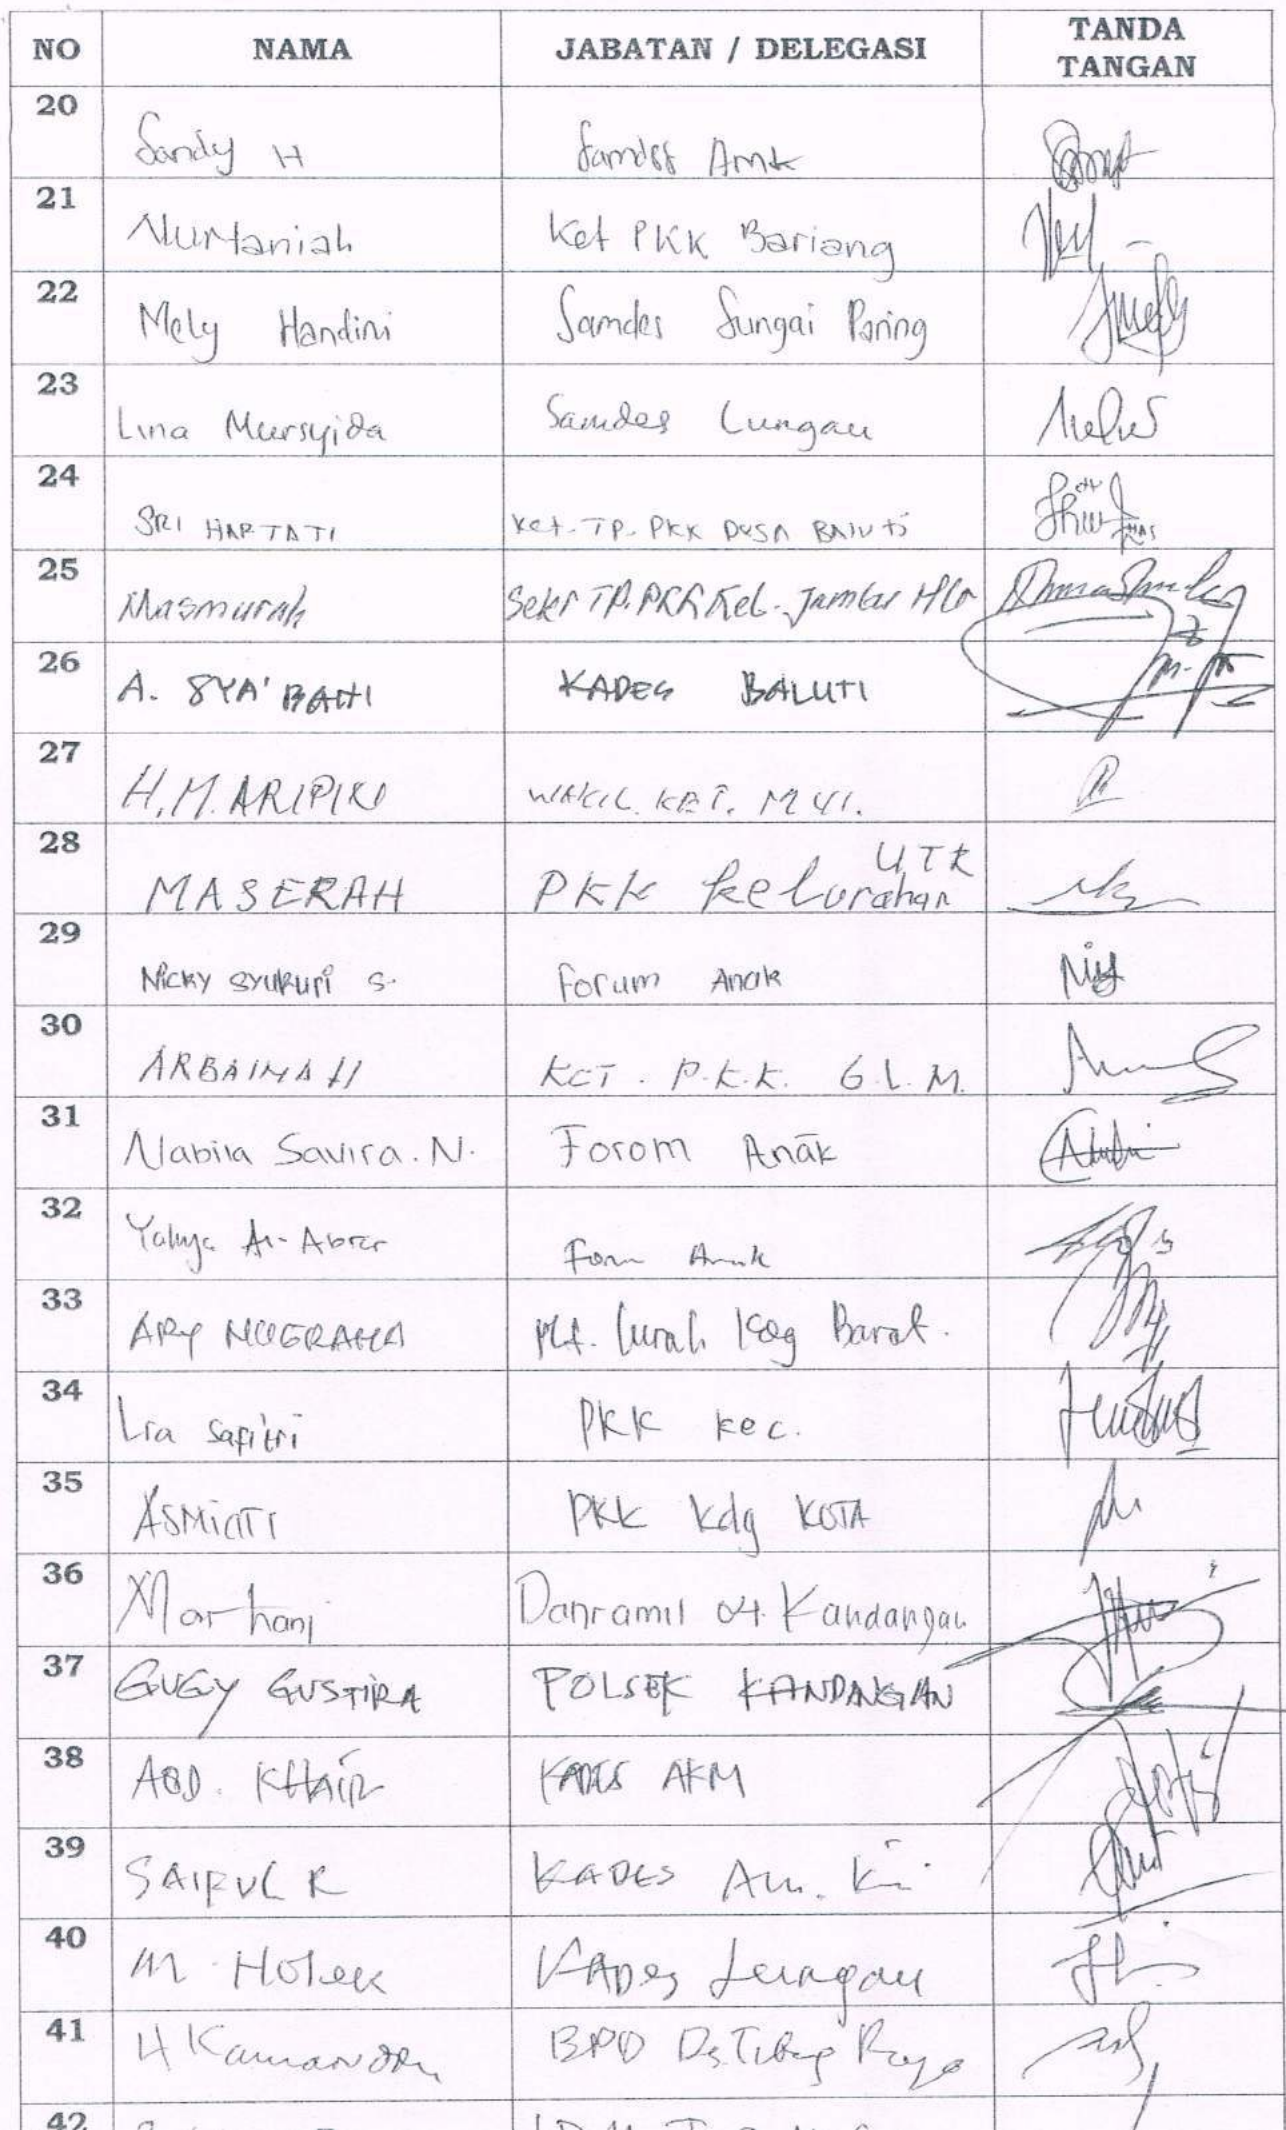 NO NAMA JABATAN / DELEGASI TANDA TANGAN
20 Sandy H Samdes Amk
21 Nurtaniah Ket PKK Bariang
22 Mely Handini Samdes Sungai Paring
23 Lina Mursyida Samdes Lungau
24 SRI HARTATI Ket. TP. PKK DESA BALUTI
25 Masmurah Sekr TP. PKK Kel. Jambu Hlr
26 A. SYA'BANI KADES BALUTI
27 H.M. ARIPIN WAKIL KET. MUI.
28 MASERAH PKK Kelurahan UTR
29 Nicky Syukuri S. Forum Anak
30 ARBAINAH KET. P.K.K. G.L.M.
31 Nabila Savira. N. Forom Anak
32 Yahya Al-Abrar Forum Anak
33 ARY NUGRAHA Plt. Lurah Kdg Barat.
34 Lia Safitri PKK Kec.
35 ASMIATI PKK Kdg KOTA
36 Marhani Danramil 04. Kandangan
37 GUGY GUSTIRA POLSEK KANDANGAN
38 ABD. KHAIR KADES AKM
39 SAIPUL R KADES Am.
40 M. Holek KADes Lungau
41 H Kamandr BPD Ds. Tibung Raya
42